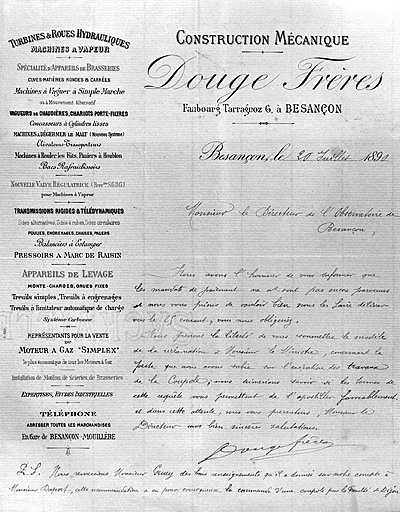 TURBINES & ROUES HYDRAULIQUES
MACHINES A VAPEUR
SPÉCIALITÉ D'APPAREILS DE BRASSERIES
CUVES-MATIÈRES RONDES & CARRÉES
Machines à Vaguer à Simple Marche
ou à Mouvement Alternatif
VAGUEURS DE CHAUDIÈRES, CHARIOTS PORTE-FIÈTRES
Concasseurs à Cylindres lisses
MACHINES À DÉGERMER LE MALT (Nouveau Système)
Machines à Rouler les Fûts, Paniers à Houblon
Bacs Rafraîchissoirs
NOUVELLE VALVE RÉGULATRICE
pour Machines à Vapeur
TRANSMISSIONS RIGIDES & TÉLÉDYNAMIQUES
Scies alternatives, Scies à ruban, Scies circulaires
POULIES, ENGRENAGES, CHAISES, PALIERS
Balanciers à Estamper
PRESSOIRS A MARC DE RAISIN
APPAREILS DE LEVAGE
MONTE-CHARGES, GRUES FIXES
Treuils simples, Treuils à engrenages
Treuils à limiteur automatique de charge
Système
REPRÉSENTANTS POUR LA VENTE
DU
MOTEUR A GAZ "SIMPLEX"
le plus économique de tous les Moteurs à Gaz
Installation de Moulins, de Scieries, de Brasseries
EXPERTISES, ETUDES INDUSTRIELLES
TÉLÉPHONE
ADRESSER TOUTES LES MARCHANDISES
En Gare de BESANÇON-MOUILLÈRE
CONSTRUCTION MÉCANIQUE
Douge Frères
Faubourg Tarragnoz 6, à BESANÇON
Besançon, le 20 Juillet 1890
Monsieur le Directeur de l'Observatoire de
Besançon,
Nous avons l'honneur de vous informer que
les mandats de paiement ne nous sont pas encore parvenus
et nous vous prions de vouloir bien nous les faire délivrer
vers le 25 courant, vous nous obligerez.
Nous prenons la liberté de vous soumettre le modèle
de la réclamation à Monsieur le Ministre, concernant la
perte que nous avons subie sur l'exécution des travaux
de la Coupole; nous aimerions savoir si les termes de
cette requête vous permettent de l'apostiller favorablement,
et dans cette attente, nous vous présentons, Monsieur le
Directeur nos bien sincères salutations.
Douge frères
P.S. Nous remercions Monsieur Gruey des bons renseignements qu'il a donnés sur notre compte à
Monsieur cette recommandation a eu pour conséquence la commande d'une coupole pour la Faculté de Dijon